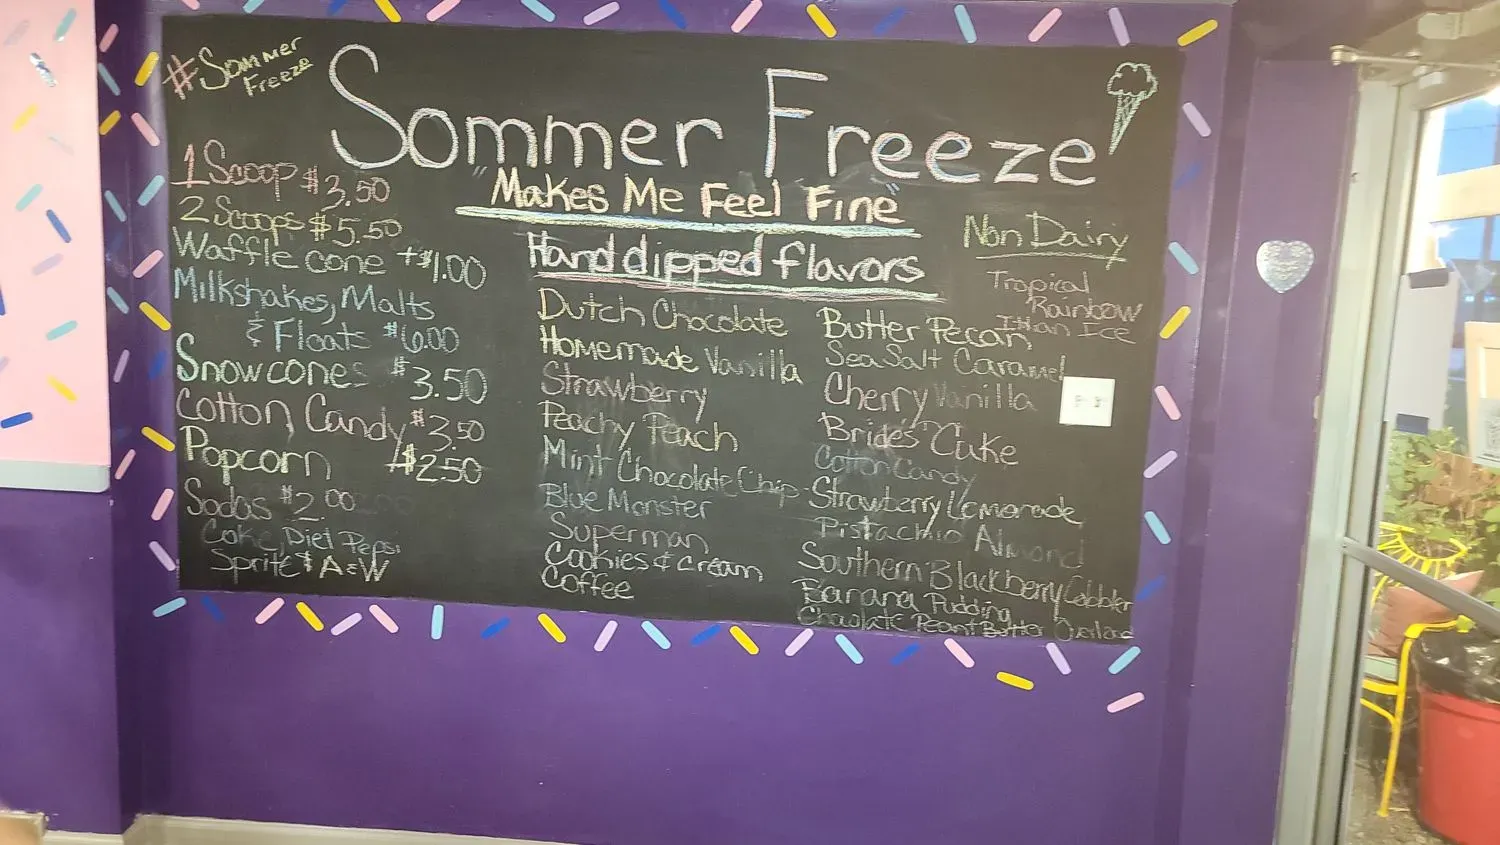 #Sommer
Freeze
Sommer Freeze
"Makes Me Feel Fine"
1 Scoop $3.50
2 Scoops $5.50
Waffle cone +$1.00
Milkshakes, Malts
& Floats $6.00
Snowcones $3.50
Cotton Candy $3.50
Popcorn $2.50
Sodas $2.00
Coke, Diet Pepsi
Sprite & A&W
Hand dipped flavors
Dutch Chocolate
Homemade Vanilla
Strawberry
Peachy Peach
Mint Chocolate Chip
Blue Monster
Superman
Cookies & Cream
Coffee
Butter Pecan
Sea Salt Caramel
Cherry Vanilla
Bride's Cake
Cotton Candy
Strawberry Lemonade
Pistachio Almond
Southern Blackberry Cobbler
Banana Pudding
Chocolate Peanut Butter Overload
Non Dairy
Tropical
Rainbow
Ice